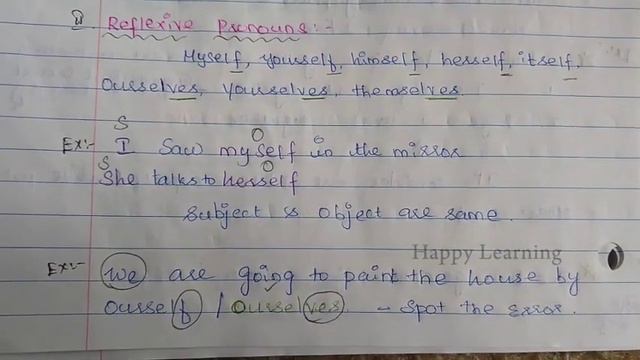 Reflexive Pronouns:-
Myself, yourself, himself, herself, itself,
Ourselves, Yourselves, themselves.
S O O
Ex:- I saw myself in the mirror
S O
She talks to herself
Subject is object are same.
Happy Learning
Ex:- We are going to paint the house by
ourself / ourselves - Spot the error.